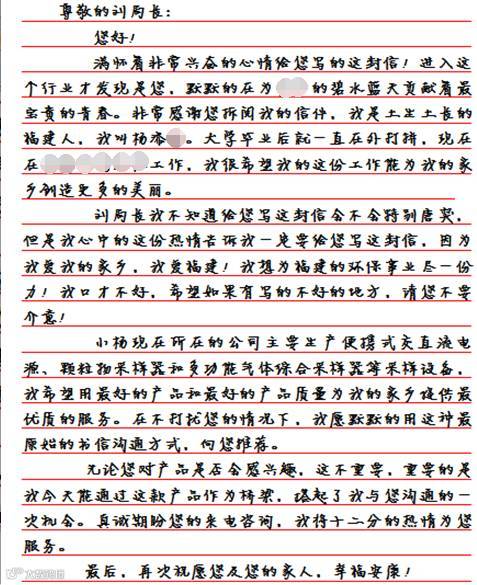 尊敬的刘局长：
您好！
满怀着非常兴奋的心情给您写的这封信！进入这
个行业才发现是您，默默的在为 的碧水蓝天贡献着最
宝贵的青春。非常感谢您拆阅我的信件，我是土生土长的
福建人，我叫杨 。大学毕业后就一直在外打拼，现在
在 工作，我很希望我的这份工作能为我的家
乡创造更多的美丽。
刘局长我不知道给您写这封信会不会特别唐突，
但是我心中的这份热情告诉我一定要给您写这封信，因为
我爱我的家乡，我爱福建！我想为福建的环保事业尽一份
力！我口才不好，希望如果有写的不好的地方，请您不要
介意！
小杨现在所在的公司主要生产便携式交直流电
源、颗粒物采样器和多功能气体综合采样器等采样设备，
我希望用最好的产品和最好的产品质量为我的家乡提供最
优质的服务。在不打扰您的情况下，我愿默默的用这种最
原始的书信沟通方式，向您推荐。
无论您对产品是否会感兴趣，这不重要，重要的是
我今天能通过这款产品作为桥梁，搭起了我与您沟通的一
次机会。真诚期盼您的来电咨询，我将十二分的热情为您
服务。
最后，再次祝愿您及您的家人，幸福安康！